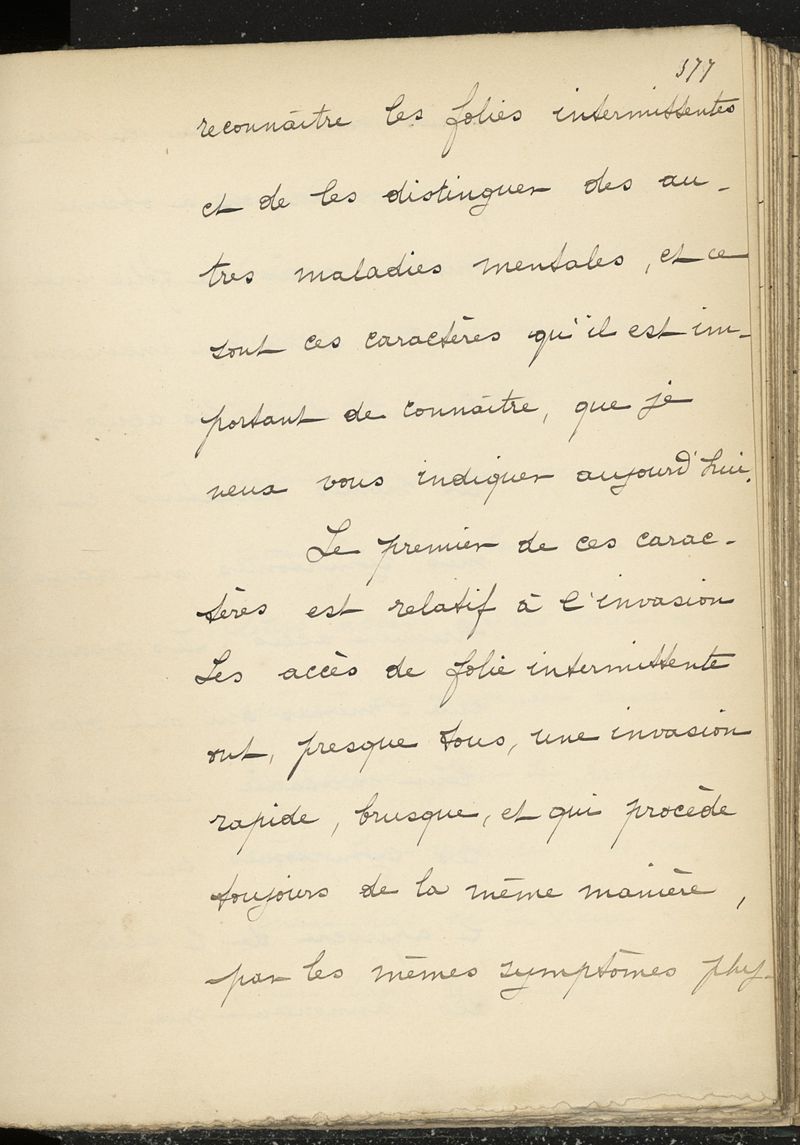 377
reconnaître les folies intermittentes
et de les distinguer des au-
tres maladies mentales, et ce
sont ces caractères qu'il est im-
portant de connaître, que je
veux vous indiquer aujourd'hui.
Le premier de ces carac-
tères est relatif à l'invasion
Les accès de folie intermittente
ont, presque tous, une invasion
rapide, brusque, et qui procède
toujours de la même manière,
par les mêmes symptômes phy-